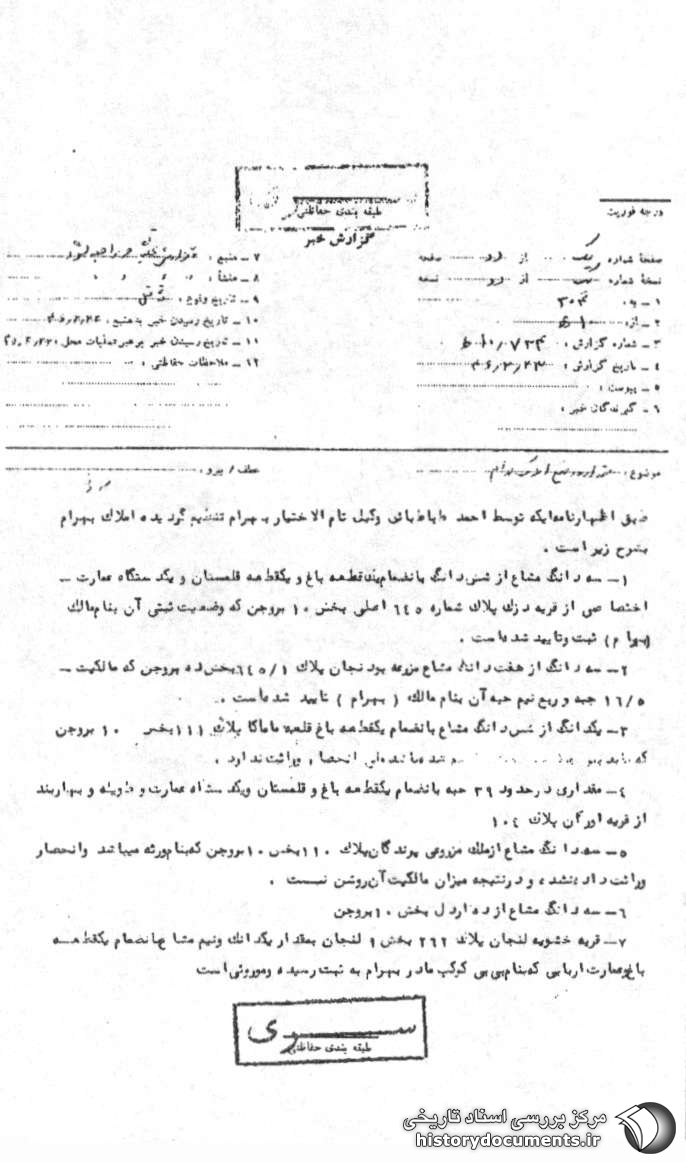 طبقه بندی حفاظتی
گزارش خبر
درجه فوریت
صفحه شماره یک از دو صفحه
نسخه شماره از دو نسخه
۱ - به : ۳۰۴
۲ - از :
۳ - شماره گزارش :
۴ - تاریخ گزارش :
۵ - پیوست :
۶ - گیرندگان خبر :
۷ - منبع :
۸ - منشأ :
۹ - تاریخ وقوع :
۱۰ - تاریخ رسیدن خبر به منبع :
۱۱ - تاریخ رسیدن خبر برهبر عملیات محل :
۱۲ - ملاحظات حفاظتی :
موضوع :
عطف / پیرو :
طبق اظهارنامه ایکه توسط احمد طباطبائی وکیل تام الاختیار بهرام تنظیم گردیده املاک بهرام
بشرح زیر است .
۱- سه دانگ مشاع از شش دانگ بانضمام یکقطعه باغ و یکقطعه قلمستان و یکدستگاه عمارت -
اختصاصی از قریه دزک پلاک شماره ۶۴۵ اصلی بخش ۱۰ بروجن که وضعیت ثبتی آن بنام مالک
(بهرام) ثبت وتایید شده است .
۲- سه دانگ از هفت دانگ مشاع مزرعه بودنجان پلاک ۶۴۵/۱ بخش ده بروجن که مالکیت -
۱۶/۵ حبه و ربع نیم حبه آن بنام مالک ( بهرام ) تایید شده است .
۳- یکدانگ از شش دانگ مشاع بانضمام یکقطعه باغ قلعه ماماکا پلاک ۱۱۱ بخش ۱۰ بروجن
که شده مانده ولی انحصار وراثت ندارد .
۴- مقداری در حدود ۳۹ حبه بانضمام یکقطعه باغ و قلمستان ویکدستگاه عمارت و طویله و بهاربند
از قریه اورگان پلاک ۱۰۴
۵- سه دانگ مشاع ازملک مزروعی پرندگان پلاک ۱۱۰ بخش ۱۰ بروجن که بنام ورثه میباشد وانحصار
وراثت داده نشده و درنتیجه میزان مالکیت آن روشن نیست .
۶- سه دانگ مشاع از ده اردل بخش ۱۰ بروجن
۷- قریه خشویه لنجان پلاک ۲۶۲ بخش ۹ لنجان بمقدار یکدانگ ونیم مشاع بانضمام یکقطعه
باغ وعمارت اربابی که بنام بی بی کوکب مادر بهرام به ثبت رسیده وموروثی است
سری
طبقه بندی حفاظتی
مرکز بررسی اسناد تاریخی
historydocuments.ir